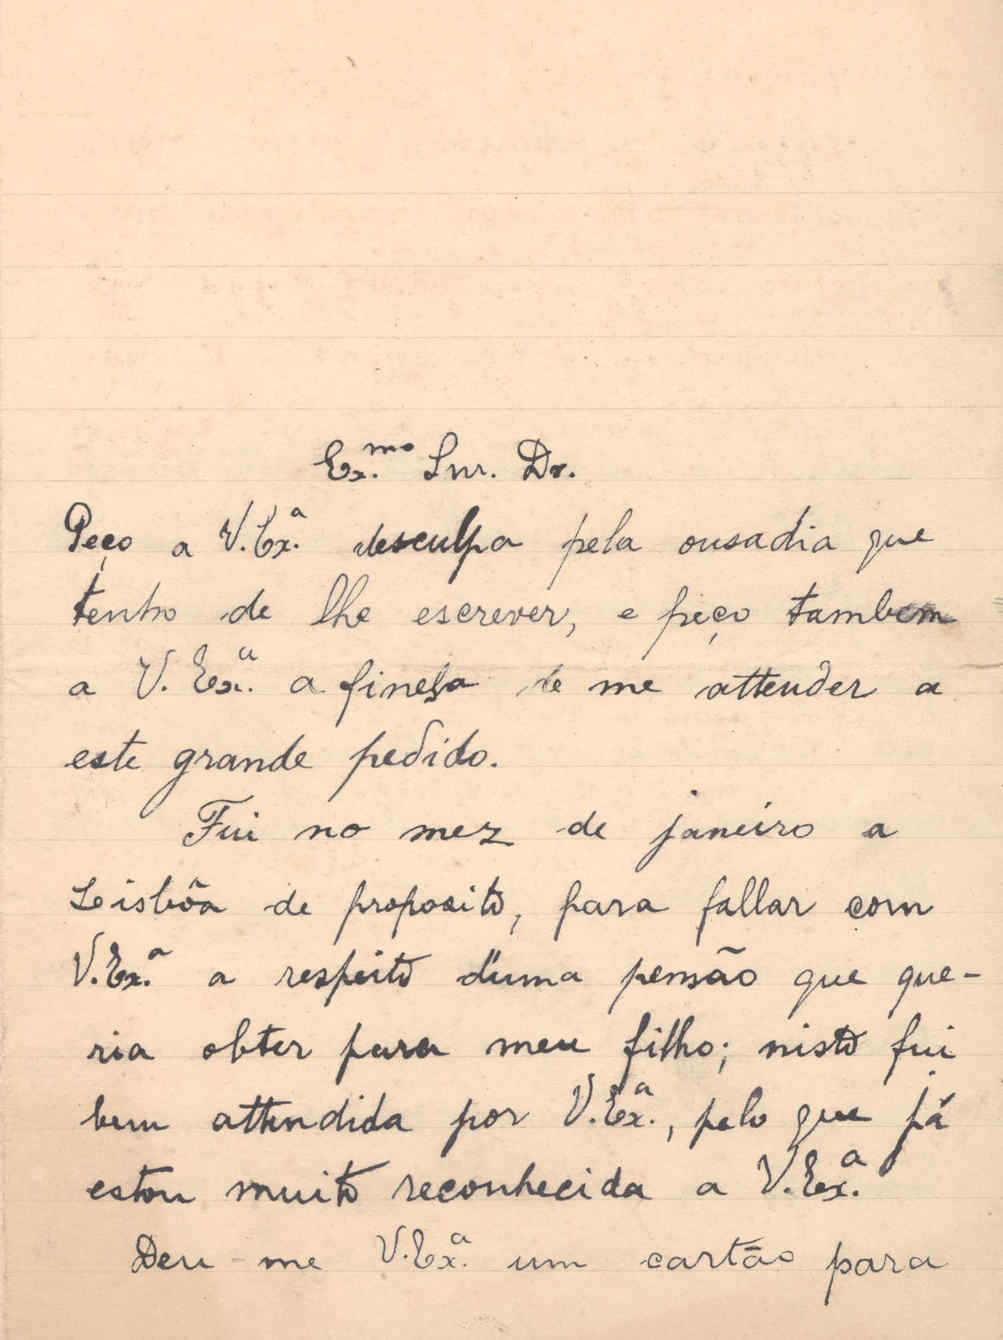 Ex.mo Snr. Dr.
Peço a V. Ex.a desculpa pela ousadia que
tenho de lhe escrever, e peço tambem
a V. Ex.a a finesa de me attender a
este grande pedido.
Fui no mez de janeiro a
Lisbôa de proposito, para fallar com
V. Ex.a a respeito d'uma pensão que que-
ria obter para meu filho; nisto fui
bem attendida por V. Ex.a, pelo que já
estou muito reconhecida a V. Ex.a
Deu-me V. Ex.a um cartão para